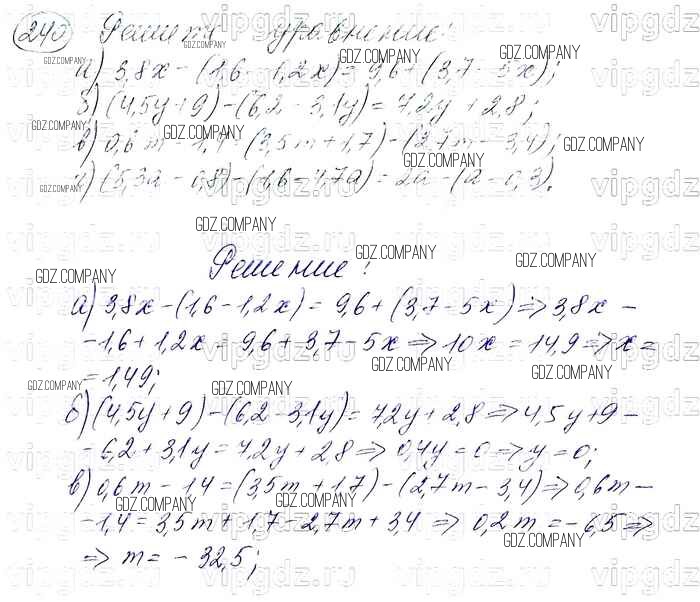 240 Решите уравнение:
а) 3,8x - (1,6 - 1,2x) = 9,6 + (3,7 - 5x);
б) (4,5y + 9) - (6,2 - 3,1y) = 7,2y + 2,8;
в) 0,6m - 1,4 = (3,5m + 1,7) - (2,7m - 3,4);
г) (5,3a - 0,8) - (1,6 - 4,7a) = 2a - (a - 0,3).
Решение:
а) 3,8x - (1,6 - 1,2x) = 9,6 + (3,7 - 5x) => 3,8x -
- 1,6 + 1,2x = 9,6 + 3,7 - 5x => 10x = 14,9 => x =
= 1,49;
б) (4,5y + 9) - (6,2 - 3,1y) = 7,2y + 2,8 => 4,5y + 9 -
- 6,2 + 3,1y = 7,2y + 2,8 => 0,4y = 0 => y = 0;
в) 0,6m - 1,4 = (3,5m + 1,7) - (2,7m - 3,4) => 0,6m -
- 1,4 = 3,5m + 1,7 - 2,7m + 3,4 => 0,2m = -6,5 =>
=> m = -32,5;
GDZ.COMPANY
vipgdz.ru